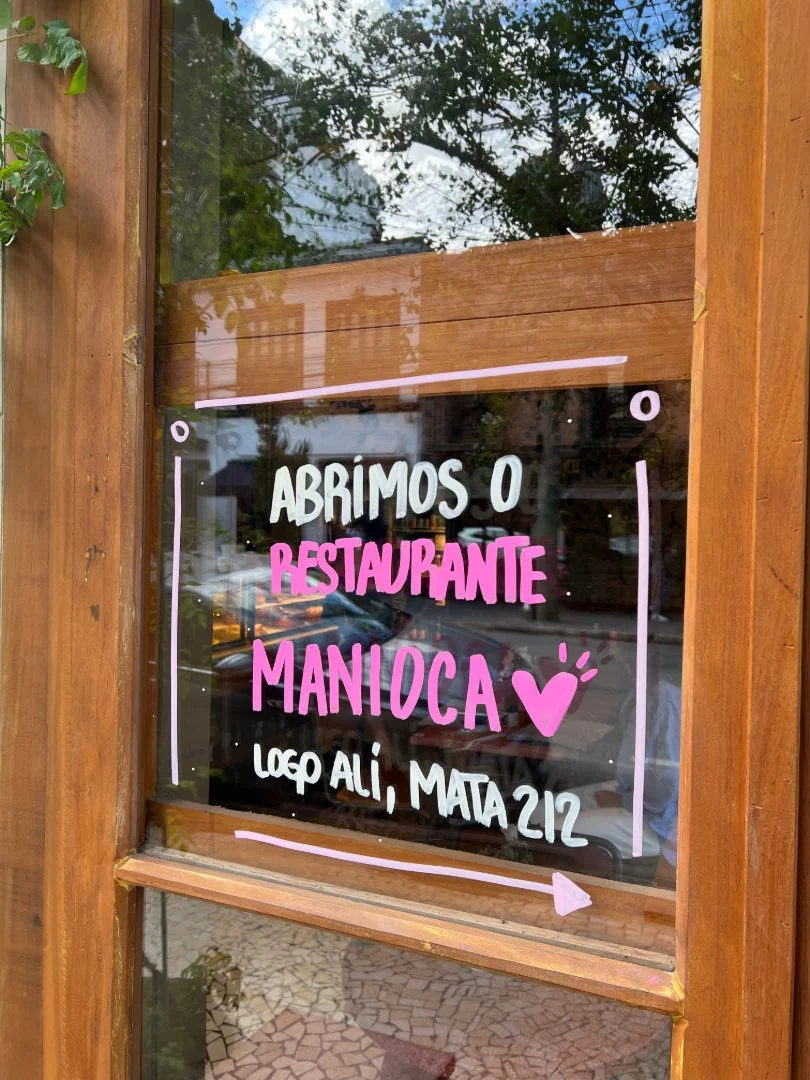 ABRIMOS O
RESTAURANTE
MANIOCA
LOGO ALI, MATA 212